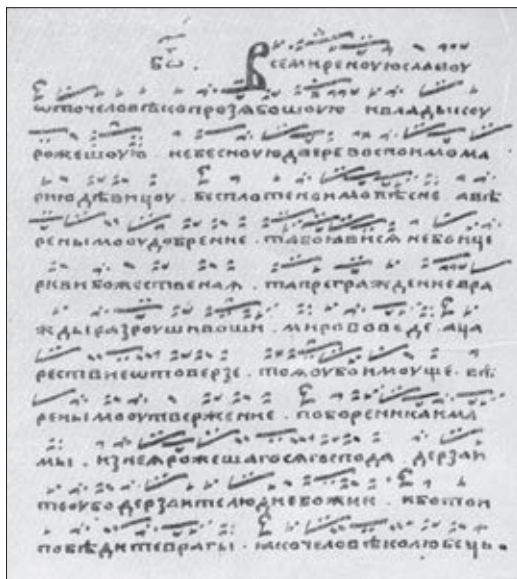 бѡ҃. Всемиреноуюславоу
ѡточеловѣскопрозѧбошоую ивладыкоу
рожешоую . небесноуюдверевоспоимома
риюдѣвицоу . бесплотеноимопѣсне авѣ
ренымоудобрение . табоꙗвисѧнебоице
рквибожественаѧ . тапреграждениевра
ждыразроушивоши . мирововеде . аца
рествиеѡтоверзе . тоѧоубоимоуще . вѣ
ренымооутвержение . поборениканма
мы . изнеѧрожешагосѧгоспода . дерзаи
теоубодерзаителюдиебожии . иботои
побѣдитеврагы . ꙗкочеловѣколюбець .